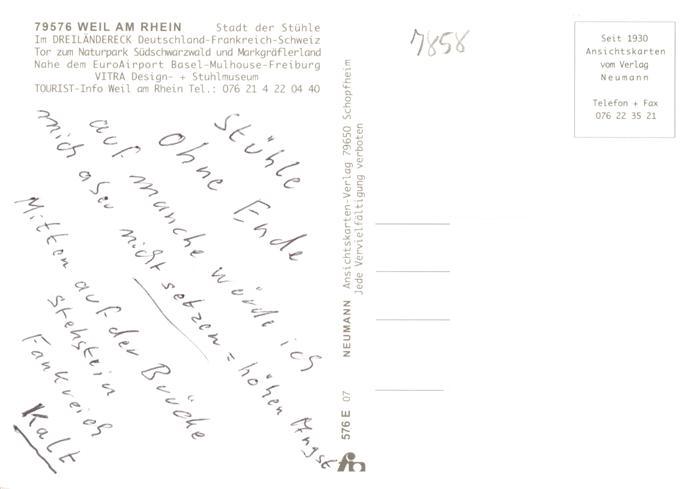 79576 WEIL AM RHEIN Stadt der Stühle
Im DREILÄNDERECK Deutschland-Frankreich-Schweiz
Tor zum Naturpark Südschwarzwald und Markgräflerland
Nahe dem EuroAirport Basel-Mulhouse-Freiburg
VITRA Design- + Stuhlmuseum
TOURIST-Info Weil am Rhein Tel.: 076 21 4 22 04 40
Stühle
Ohne Ende
auf manche würde ich
mich aber nicht setzen = höhen Angst
Mitten auf der Brücke
stehstein
Fankreich
Kalt
576 E 07 NEUMANN Ansichtskarten-Verlag 79650 Schopfheim
Jede Vervielfältigung verboten
7858
Seit 1930
Ansichtskarten
vom Verlag
Neumann
Telefon + Fax
076 22 35 21